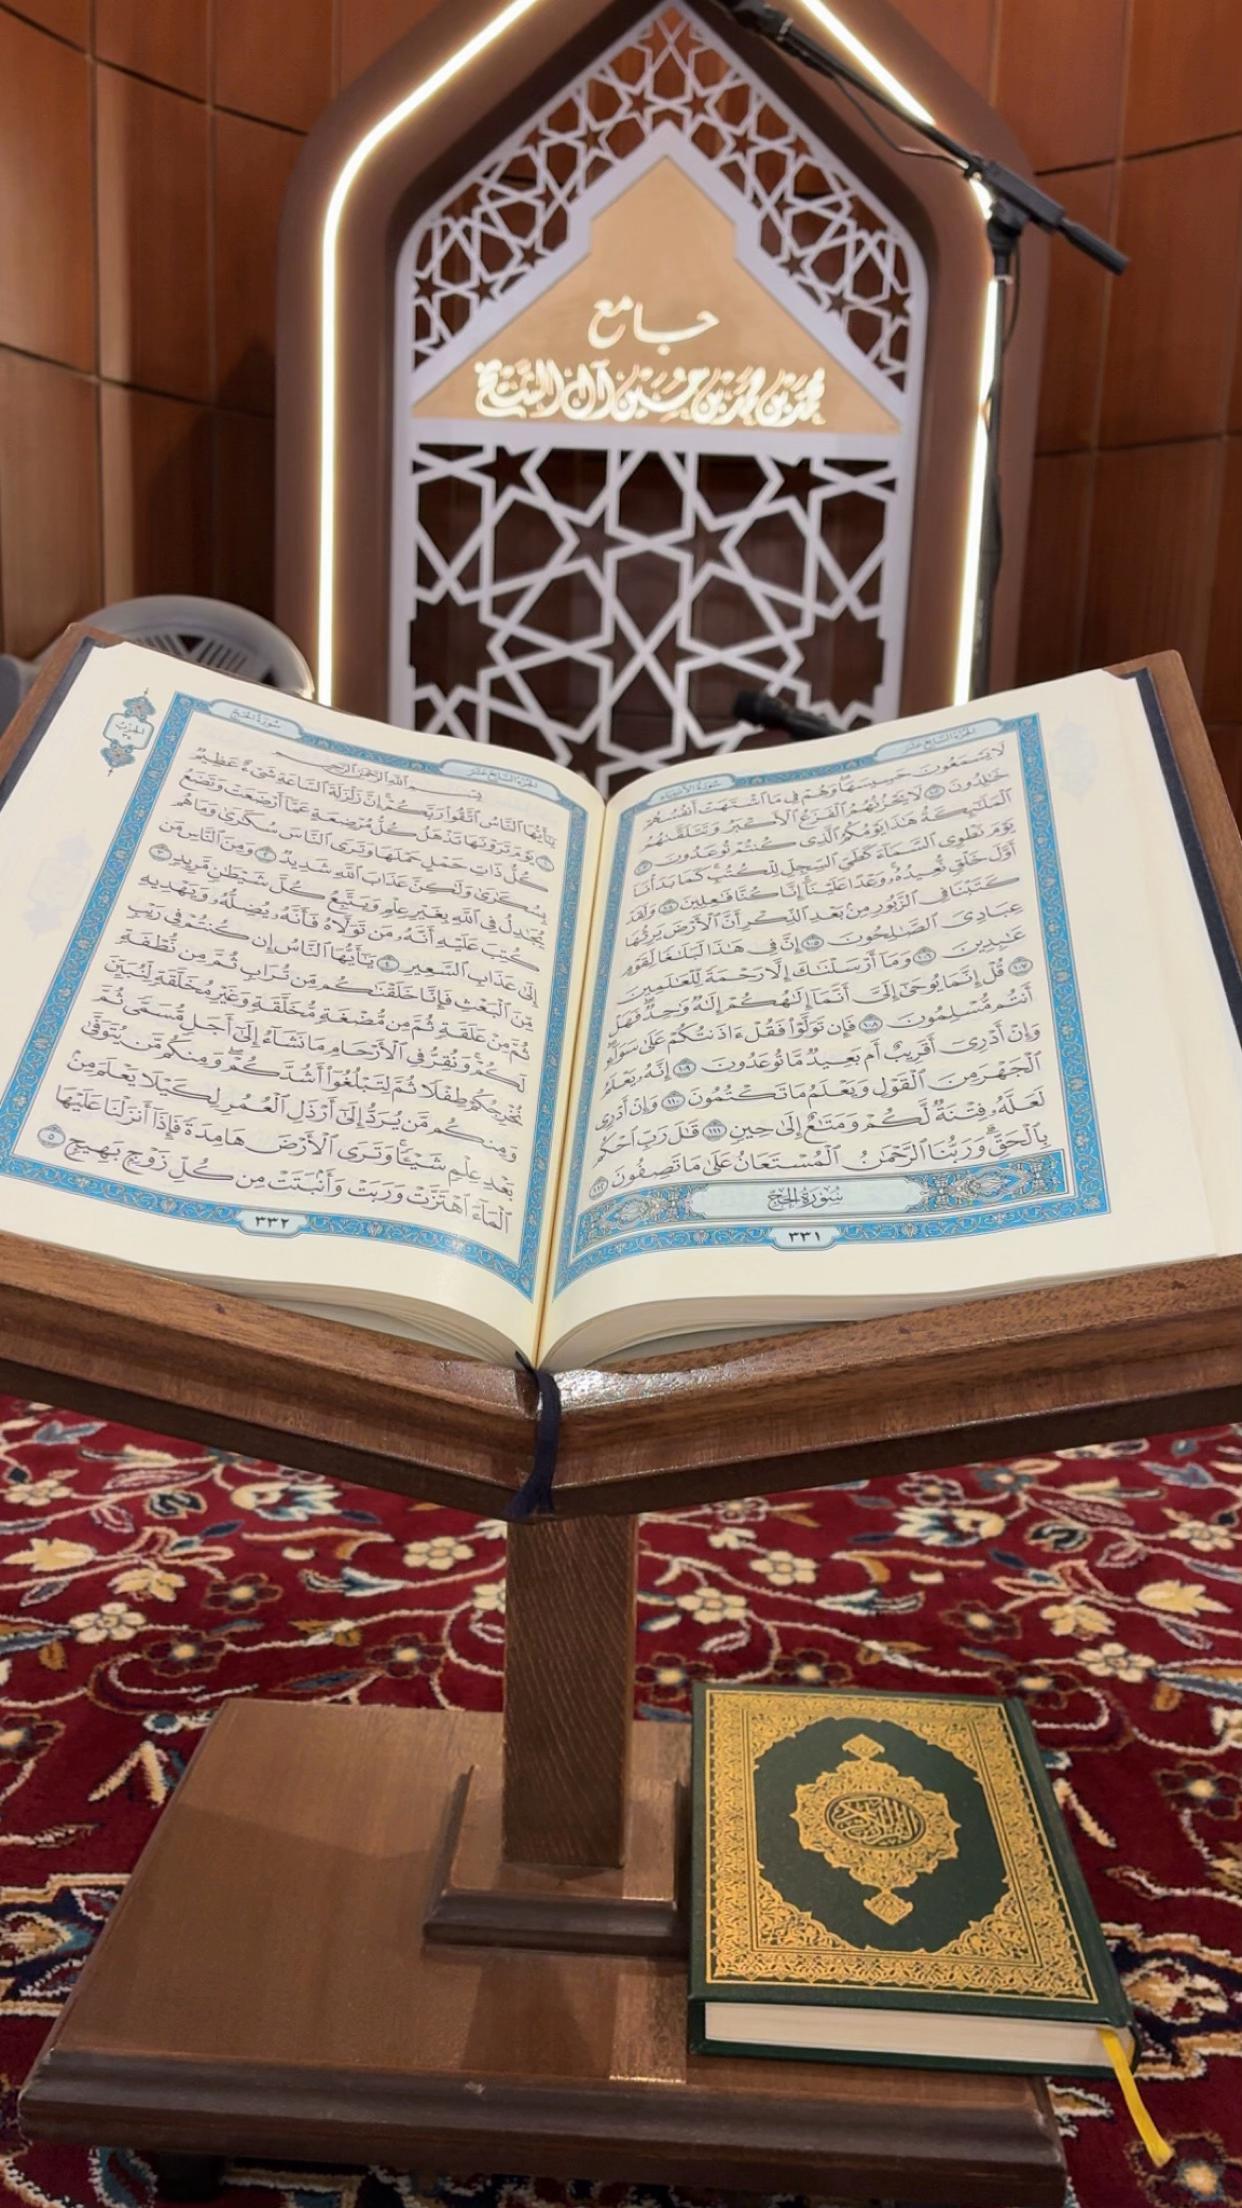 جامع
محمد بن محمد بن حسين آل الشيخ
الجزء السابع عشر
سورة الأنبياء
لَا يَسْمَعُونَ حَسِيسَهَا وَهُمْ فِي مَا اشْتَهَتْ أَنفُسُهُمْ
خَالِدُونَ ١٠٢ لَا يَحْزُنُهُمُ الْفَزَعُ الْأَكْبَرُ وَتَتَلَقَّاهُمُ
الْمَلَائِكَةُ هَٰذَا يَوْمُكُمُ الَّذِي كُنتُمْ تُوعَدُونَ ١٠٣
يَوْمَ نَطْوِي السَّمَاءَ كَطَيِّ السِّجِلِّ لِلْكُتُبِ كَمَا بَدَأْنَا
أَوَّلَ خَلْقٍ نُّعِيدُهُ وَعْدًا عَلَيْنَا إِنَّا كُنَّا فَاعِلِينَ ١٠٤ وَلَقَدْ
كَتَبْنَا فِي الزَّبُورِ مِن بَعْدِ الذِّكْرِ أَنَّ الْأَرْضَ يَرِثُهَا
عِبَادِيَ الصَّالِحُونَ ١٠٥ إِنَّ فِي هَٰذَا لَبَلَاغًا لِّقَوْمٍ
عَابِدِينَ ١٠٦ وَمَا أَرْسَلْنَاكَ إِلَّا رَحْمَةً لِّلْعَالَمِينَ
١٠٧ قُلْ إِنَّمَا يُوحَىٰ إِلَيَّ أَنَّمَا إِلَٰهُكُمْ إِلَٰهٌ وَاحِدٌ فَهَلْ
أَنتُم مُّسْلِمُونَ ١٠٨ فَإِن تَوَلَّوْا فَقُلْ آذَنتُكُمْ عَلَىٰ سَوَاءٍ
وَإِنْ أَدْرِي أَقَرِيبٌ أَم بَعِيدٌ مَّا تُوعَدُونَ ١٠٩ إِنَّهُ يَعْلَمُ
الْجَهْرَ مِنَ الْقَوْلِ وَيَعْلَمُ مَا تَكْتُمُونَ ١١٠ وَإِنْ أَدْرِي
لَعَلَّهُ فِتْنَةٌ لَّكُمْ وَمَتَاعٌ إِلَىٰ حِينٍ ١١١ قَالَ رَبِّ احْكُم
بِالْحَقِّ وَرَبُّنَا الرَّحْمَٰنُ الْمُسْتَعَانُ عَلَىٰ مَا تَصِفُونَ ١١٢
سُورَةُ الحَجِّ
٣٣١
الجزء السابع عشر
سورة الحج
بِسْمِ اللَّهِ الرَّحْمَٰنِ الرَّحِيمِ
يَا أَيُّهَا النَّاسُ اتَّقُوا رَبَّكُمْ إِنَّ زَلْزَلَةَ السَّاعَةِ شَيْءٌ عَظِيمٌ
١ يَوْمَ تَرَوْنَهَا تَذْهَلُ كُلُّ مُرْضِعَةٍ عَمَّا أَرْضَعَتْ وَتَضَعُ
كُلُّ ذَاتِ حَمْلٍ حَمْلَهَا وَتَرَى النَّاسَ سُكَارَىٰ وَمَا هُم
بِسُكَارَىٰ وَلَٰكِنَّ عَذَابَ اللَّهِ شَدِيدٌ ٢ وَمِنَ النَّاسِ مَن
يُجَادِلُ فِي اللَّهِ بِغَيْرِ عِلْمٍ وَيَتَّبِعُ كُلَّ شَيْطَانٍ مَّرِيدٍ ٣
كُتِبَ عَلَيْهِ أَنَّهُ مَن تَوَلَّاهُ فَأَنَّهُ يُضِلُّهُ وَيَهْدِيهِ
إِلَىٰ عَذَابِ السَّعِيرِ ٤ يَا أَيُّهَا النَّاسُ إِن كُنتُمْ فِي رَيْبٍ
مِّنَ الْبَعْثِ فَإِنَّا خَلَقْنَاكُم مِّن تُرَابٍ ثُمَّ مِن نُّطْفَةٍ
ثُمَّ مِنْ عَلَقَةٍ ثُمَّ مِن مُّضْغَةٍ مُّخَلَّقَةٍ وَغَيْرِ مُخَلَّقَةٍ لِّنُبَيِّنَ
لَكُمْ وَنُقِرُّ فِي الْأَرْحَامِ مَا نَشَاءُ إِلَىٰ أَجَلٍ مُّسَمًّى ثُمَّ
نُخْرِجُكُمْ طِفْلًا ثُمَّ لِتَبْلُغُوا أَشُدَّكُمْ وَمِنكُم مَّن يُتَوَفَّىٰ
وَمِنكُم مَّن يُرَدُّ إِلَىٰ أَرْذَلِ الْعُمُرِ لِكَيْلَا يَعْلَمَ مِن
بَعْدِ عِلْمٍ شَيْئًا وَتَرَى الْأَرْضَ هَامِدَةً فَإِذَا أَنزَلْنَا عَلَيْهَا
الْمَاءَ اهْتَزَّتْ وَرَبَتْ وَأَنبَتَتْ مِن كُلِّ زَوْجٍ بَهِيجٍ ٥
٣٣٢
الحزب
٣٤
القرآن الكريم